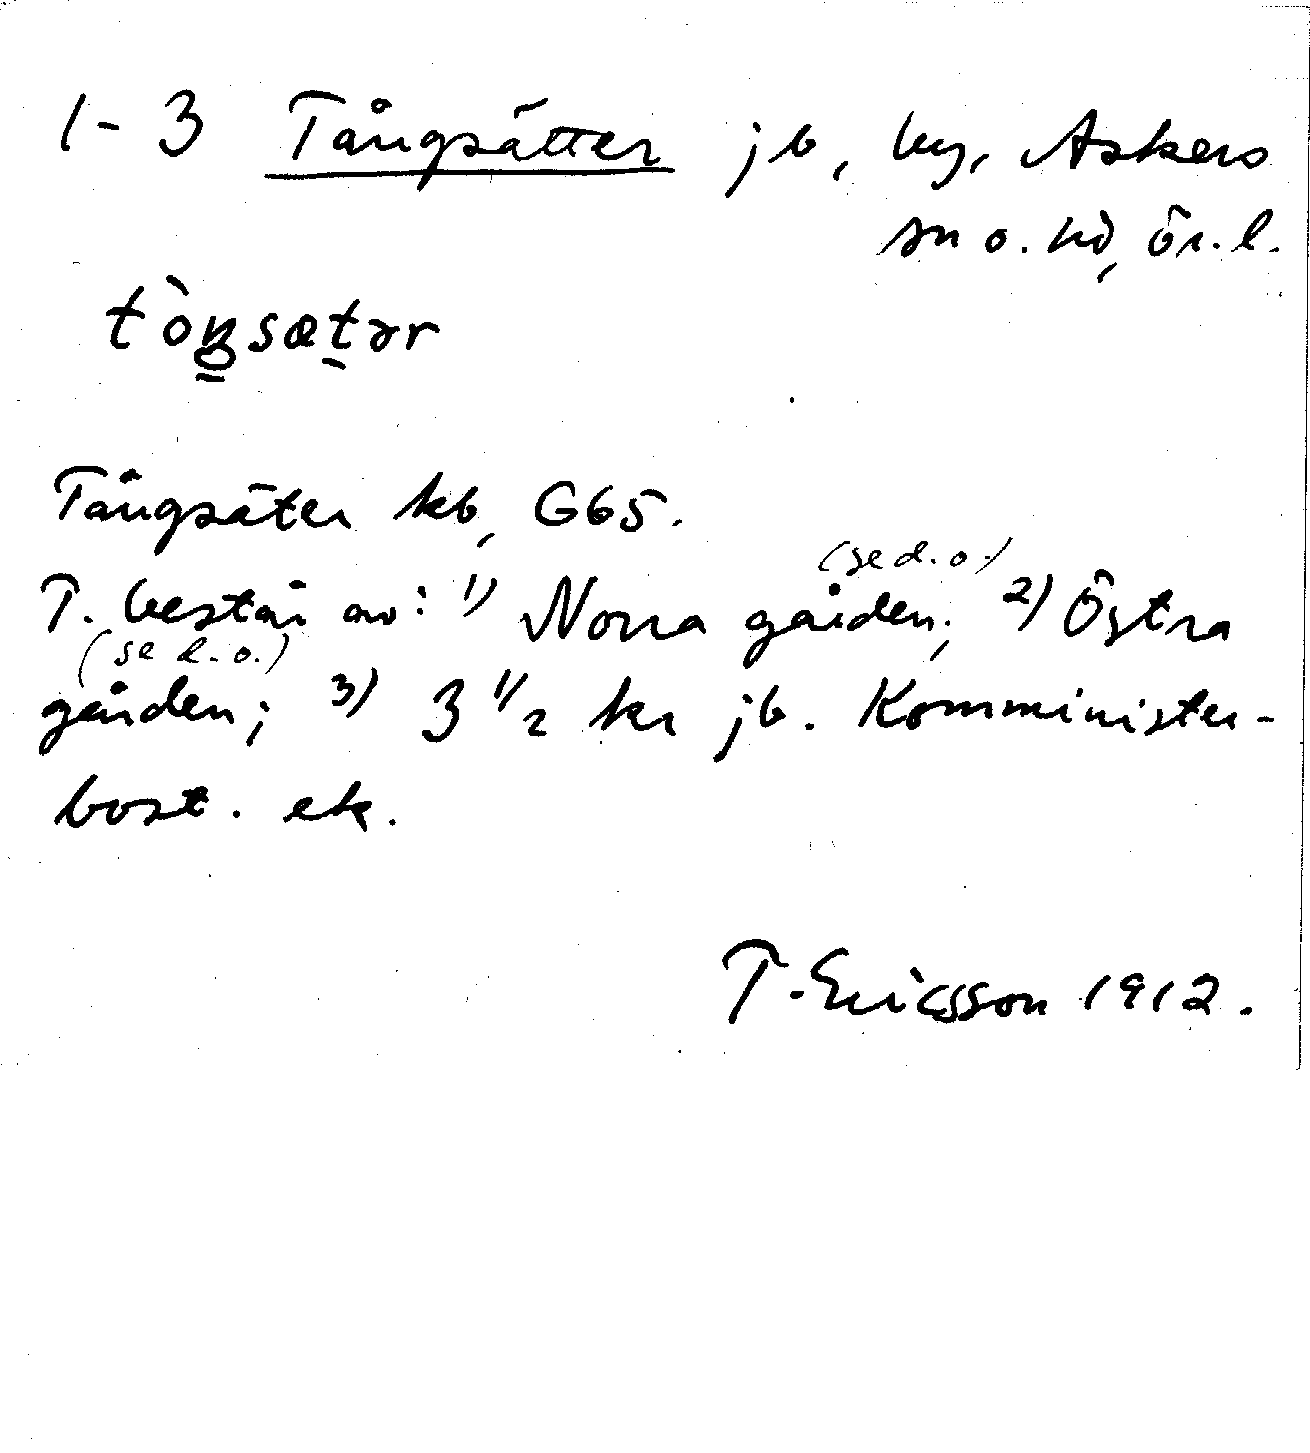 1-3 Tångsätter jb, by, Askers
sn o. hd, ör. l.
tòŋsætər
Tångsäter kb, G65.
T. består av: 1) Norra gården (se d. o.); 2) Östra
gården (se d. o.); 3) 3 1/2 kr jb. Komminister-
bost. ek.
T. Ericsson 1912.